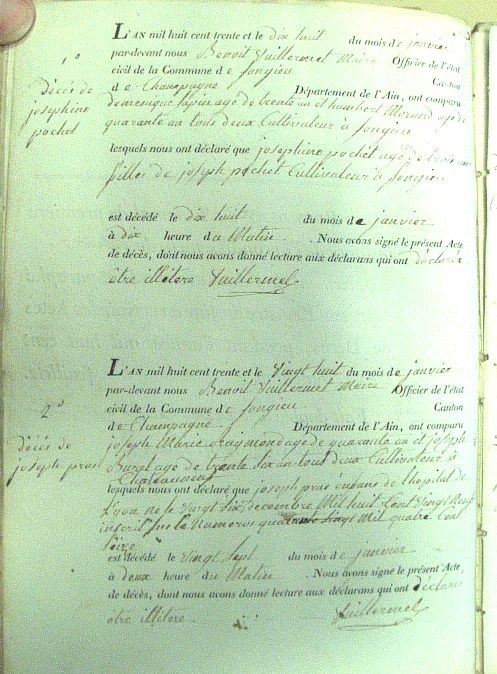 1º
décés de
josephine
pochet
L'AN mil huit cent trente et le dix huit du mois de janvier
par-devant nous Benoit Vuillermet Maire Officier de l'état
civil de la Commune de Songieu Canton
de Champagne Département de l'Ain, ont comparu
domenique lupin agé de trente an et humbert Morand agé de
quarante an tous deux Cultivateur à Songieu
lesquels nous ont déclaré que josephine pochet agé de trois an
filles de joseph pochet Cultivateur à Songieu
est décédé le dix huit du mois de janvier
à dix heure du Matin . Nous avons signé le présent Acte
de décès, dont nous avons donné lecture aux déclarans qui ont déclaré
être illétere Vuillermet
2º
décés de
joseph pras
L'AN mil huit cent trente et le Vingt huit du mois de janvier
par-devant nous Benoit Vuillermet Maire Officier de l'état
civil de la Commune de Songieu Canton
de Champagne Département de l'Ain, ont comparu
joseph Marie agé de quarante an et joseph
agé de trante six an tous deux Cultivateur à
Chateauneuf
lesquels nous ont déclaré que joseph pras enfans de l'hopital de
Lyon né le Vingt Six decembre Mil huit Cent Vingt Neuf
inscrit sur le Numeros quatre Vingt Mil quatre Cent
Seize
est décédé le Vingt Sept du mois de janvier
à deux heure du Matin . Nous avons signé le présent Acte,
de décès, dont nous avons donné lecture aux déclarans qui ont déclaré
être illétere Vuillermet